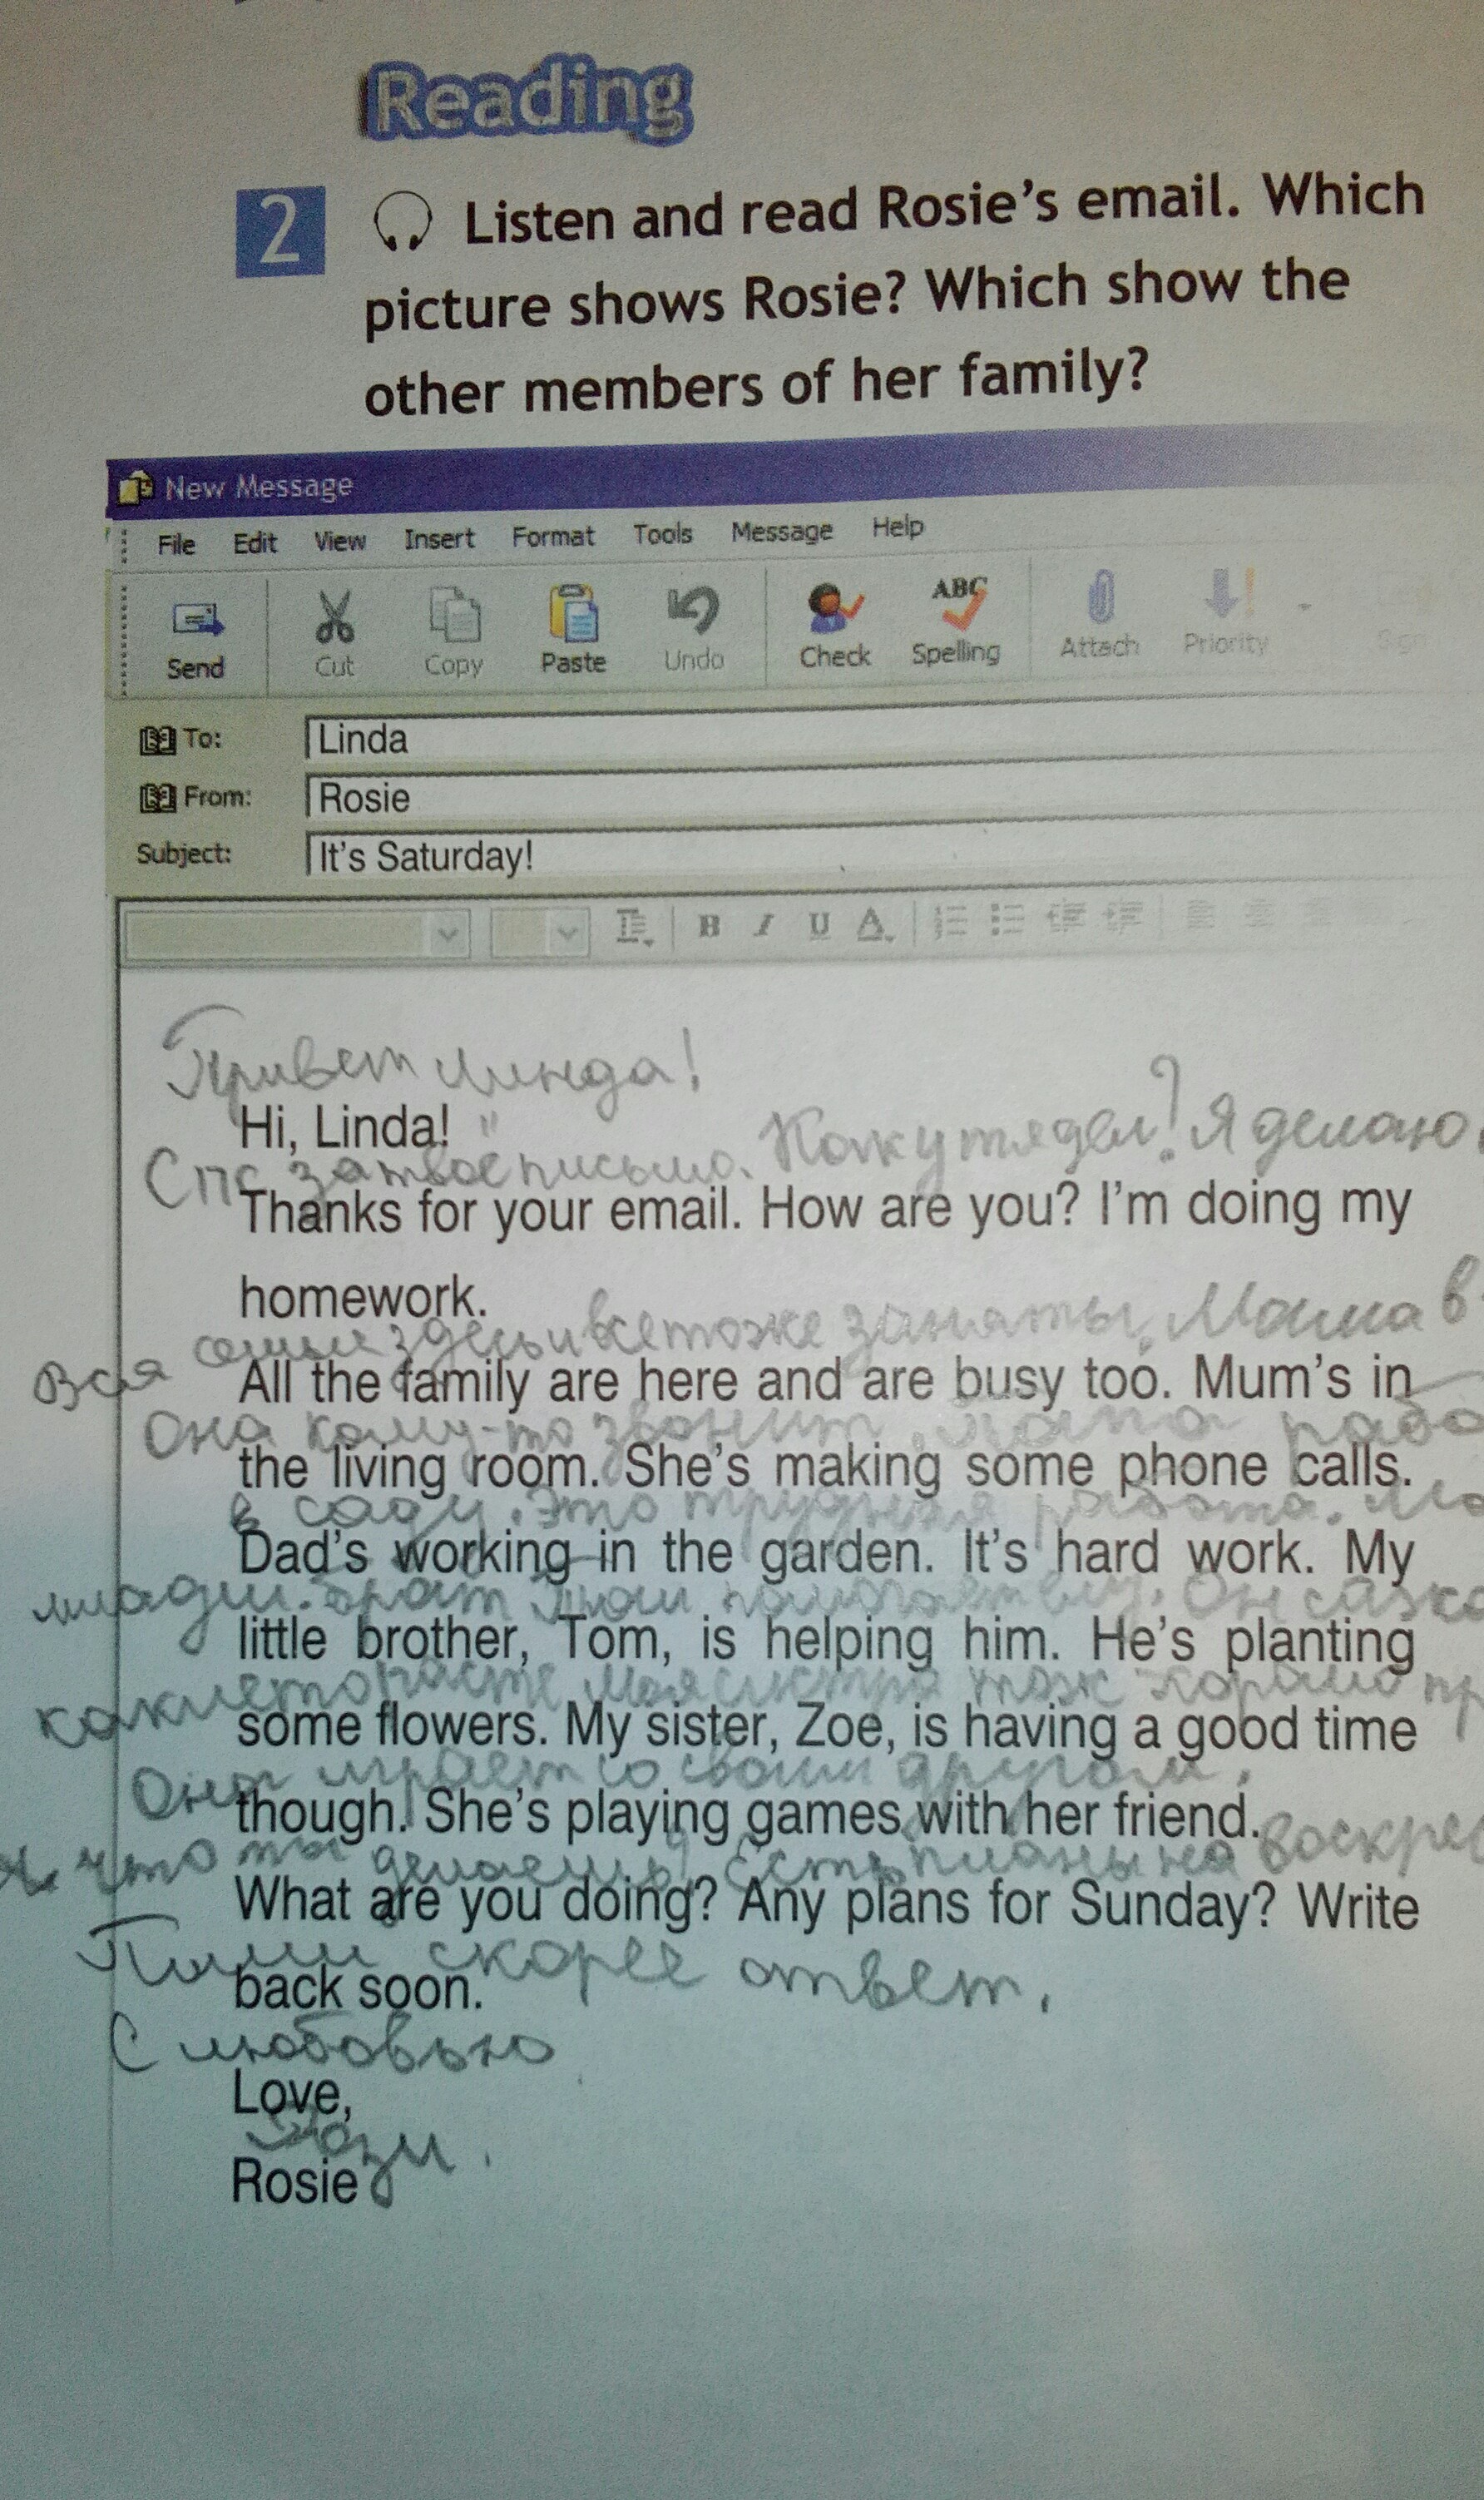 Reading
2 Listen and read Rosie's email. Which
picture shows Rosie? Which show the
other members of her family?
New Message
File Edit View Insert Format Tools Message Help
Send Cut Copy Paste Undo Check Spelling Attach Priority
ABC
To: Linda
From: Rosie
Subject: It's Saturday!
B I U A
Привет Линда!
Hi, Linda!
Спс за твоё письмо. Как у тя дел? Я делаю
Thanks for your email. How are you? I'm doing my
homework.
Вся семья здесь и все тоже заняты. Мама в
All the family are here and are busy too. Mum's in
Она кому-то звонит, папа рабо
the living room. She's making some phone calls.
в саду. Это трудная работа. Мо
Dad's working in the garden. It's hard work. My
младш. брат Том помогает ему. Он сажа
little brother, Tom, is helping him. He's planting
какие то расте Моя систра тож хорошо пр
some flowers. My sister, Zoe, is having a good time
Она играет со своим другом.
though. She's playing games with her friend.
что ты делаешь? Есть планы на воскре
What are you doing? Any plans for Sunday? Write
Пиши скорее ответ.
back soon.
С любовью
Love,
Рози.
Rosie